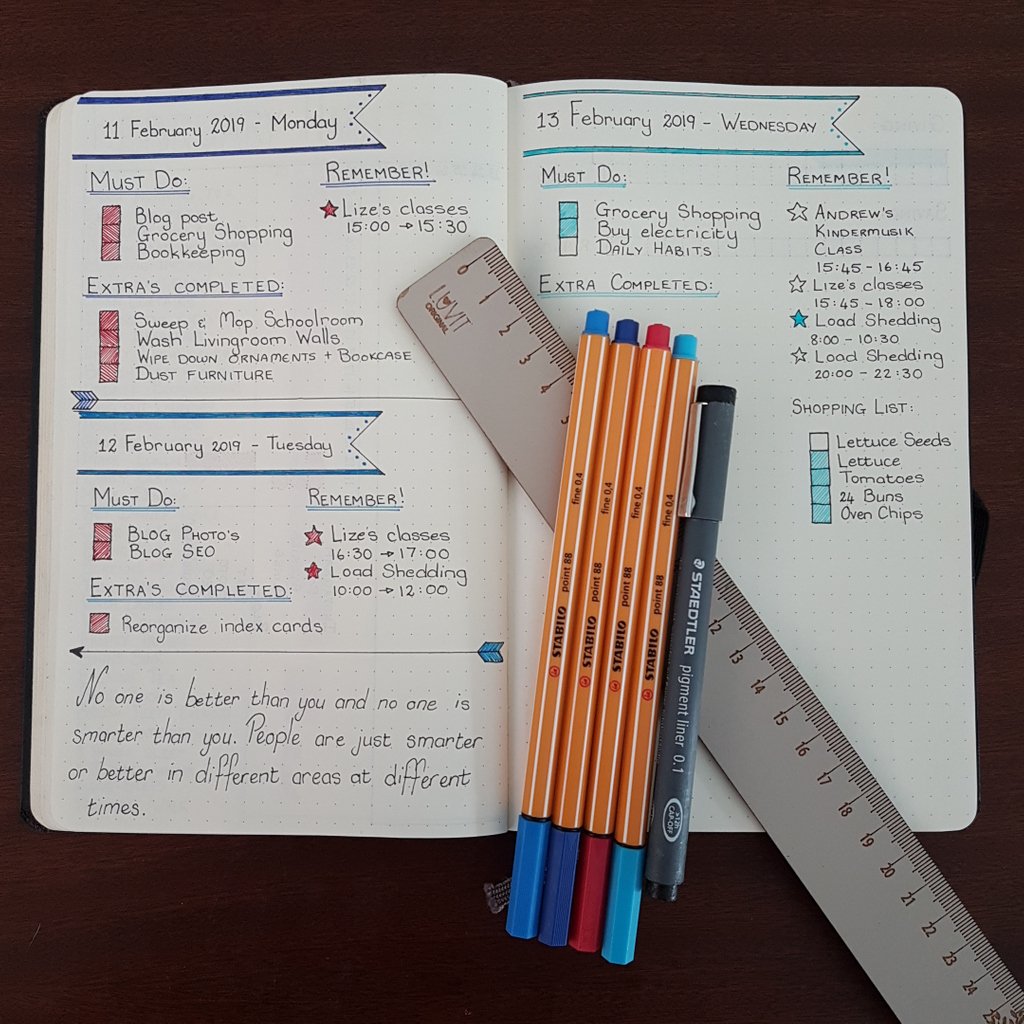 11 February 2019 - Monday
Must Do:
Blog post
Grocery Shopping
Bookkeeping
Remember!
Lize's classes
15:00 → 15:30
Extra's completed:
Sweep & Mop Schoolroom
Wash Livingroom Walls
Wipe down ornaments + Bookcase
Dust furniture
12 February 2019 - Tuesday
Must Do:
Blog Photo's
Blog SEO
Remember!
Lize's classes
16:30 → 17:00
Load Shedding
10:00 → 12:00
Extra's completed:
Reorganize index cards
No one is better than you and no one is
smarter than you. People are just smarter
or better in different areas at different
times.
13 February 2019 - Wednesday
Must Do:
Grocery Shopping
Buy electricity
Daily Habits
Extra Completed:
Remember!
Andrew's
Kindermusik
Class
15:45 - 16:45
Lize's classes
15:45 - 18:00
Load Shedding
8:00 - 10:30
Load Shedding
20:00 - 22:30
Shopping List:
Lettuce Seeds
Lettuce
Tomatoes
24 Buns
Oven Chips
LUVIT
ORIGINAL
0 1 2 3 4
12 13 14 15 16 17 18 19 20 21 22 23 24 25
STABILO point 88 fine 0.4
STABILO point 88 fine 0.4
STABILO point 88 fine 0.4
STABILO point 88 fine 0.4
STAEDTLER pigment liner 0.1
CAP-OFF